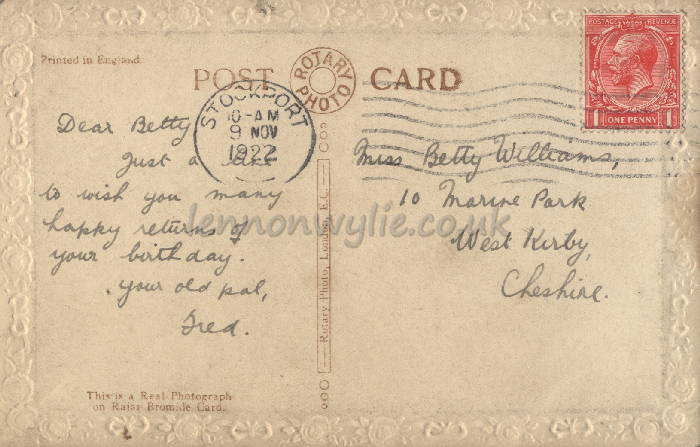 Printed in England.
POST CARD
ROTARY PHOTO
STOCKPORT
10-AM
9 NOV
1922
POSTAGE REVENUE
1 ONE PENNY 1
Dear Betty
Just a
to wish you many
happy returns of
your birthday.
Your old pal,
Fred.
This is a Real Photograph
on Rajar Bromide Card.
Rotary Photo, London, E.C.
Miss Betty Williams,
10 Marine Park
West Kirby,
Cheshire.
lennonwylie.co.uk